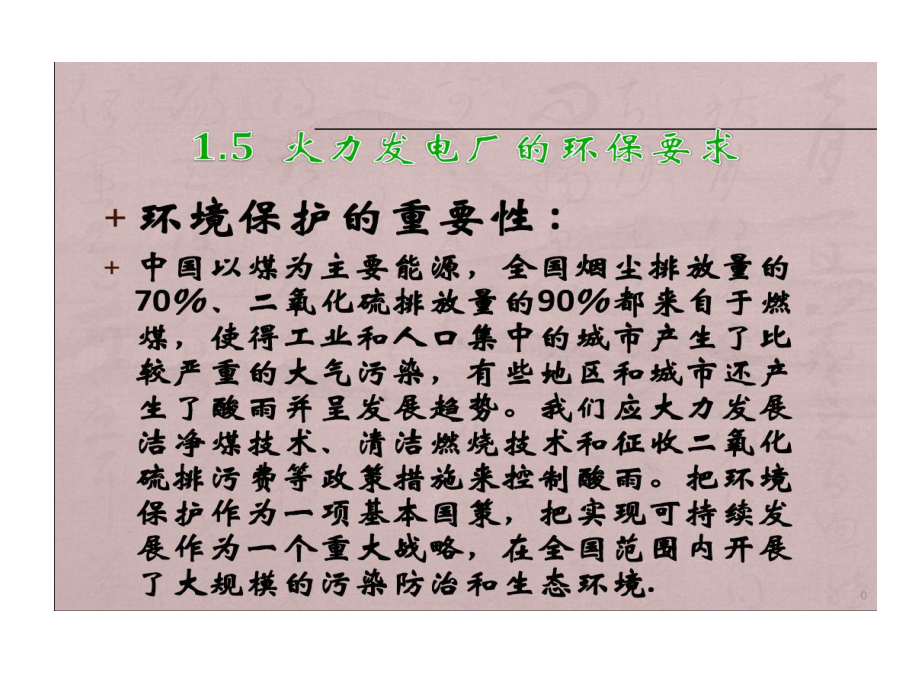 1.5 火力发电厂的环保要求
+ 环境保护的重要性：
+ 中国以煤为主要能源，全国烟尘排放量的
70%、二氧化硫排放量的90%都来自于燃
煤，使得工业和人口集中的城市产生了比
较严重的大气污染，有些地区和城市还产
生了酸雨并呈发展趋势。我们应大力发展
洁净煤技术、清洁燃烧技术和征收二氧化
硫排污费等政策措施来控制酸雨。把环境
保护作为一项基本国策，把实现可持续发
展作为一个重大战略，在全国范围内开展
了大规模的污染防治和生态环境.
0